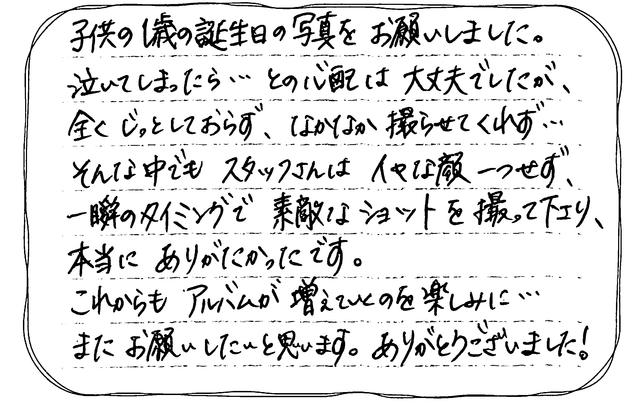 子供の1歳の誕生日の写真を お願いしました。
泣いてしまったら… との心配は 大丈夫でしたが、
全く じっとしておらず、なかなか 撮らせてくれず…
そんな中でも スタッフさんは イヤな顔 一つせず、
一瞬のタイミングで 素敵な ショットを 撮って下さり、
本当に ありがたかったです。
これからも アルバムが 増えていくのを 楽しみに…
また お願いしたいと思います。ありがとうございました!